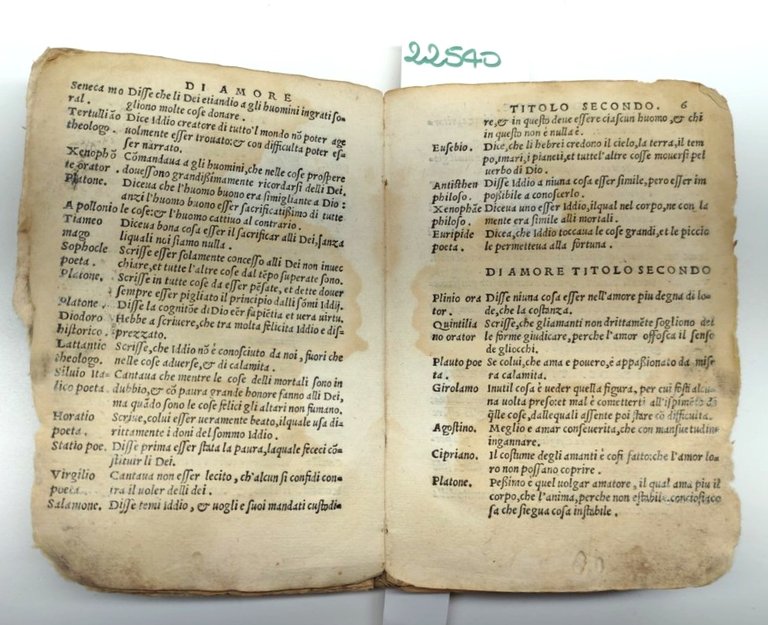 22540
DI AMORE
Seneca mo Disse che li Dei etiandio a gli huomini ingrati so-
ral. gliono molte cose donare.
Tertulliāo Dice Iddio creatore di tutto'l mondo nō poter age
theologo. uolmente esser trouato: & con difficulta poter es-
ser narrato.
Xenophō Cōmandaua a gli huomini, che nelle cose prospere
te orator. douessono grandissimamente ricordarsi delli Dei.
Platone. Diceua che l'huomo buono era simigliante a Dio:
anzi l'huomo buono esser sacrificatissimo di tutte
Apollonio le cose: & l'huomo cattiuo al contrario.
Tiameo Diceua bona cosa esser il sacrificar alli Dei, sanza
mago liquali noi siamo nulla.
Sophocle Scrisse esser solamente concesso alli Dei non inuec
poeta. chiare, et tutte l'altre cose dal tēpo superate sono.
Platone. Scrisse in tutte cose da esser pēsate, et dette douer
sempre esser pigliato il principio dalli sōmi Iddij.
Platone. Disse la cognitōe di Dio eēr sapiētia et uera uirtu.
Diodoro Hebbe a scriuere, che tra molta felicita Iddio e dis-
historico. prezzato.
Lattantio Scrisse, che Iddio nō è conosciuto da noi, fuori che
theologo. nelle cose aduerse, & di calamita.
Siluio Ita- Cantaua che mentre le cose delli mortali sono in
lico poeta. dubbio, & cō paura grande honore fanno alli Dei,
ma quādo sono le cose felici gli altari non fumano.
Horatio Scriue, colui esser ueramente beato, ilquale usa di-
poeta. rittamente i doni del sommo Iddio.
Statio poe. Disse prima esser stata la paura, laquale fece ci cō-
stituir li Dei.
Virgilio Cantaua non esser lecito, ch'alcun si confidi con-
poeta. tra il uoler delli dei.
Salamone. Disse temi Iddio, & uogli e suoi mandati custodi-
TITOLO SECONDO. 6
re, & in questo deue essere ciascun huomo, & chi
in questo non è nulla è.
Eusebio. Dice, che li hebrei credono il cielo, la terra, il tem
po, i mari, i pianeti, et tutte l'altre cose mouersi pel
uerbo di Dio.
Antisthen Disse Iddio a niuna cosa esser simile, pero esser im
philoso. possibile a conoscerlo.
Xenophāe Diceua uno esser Iddio, ilqual nel corpo, ne con la
philoso. mente era simile alli mortali.
Euripide Dicea, che Iddio toccaua le cose grandi, et le piccio
poeta. le permetteua alla fortuna.
DI AMORE TITOLO SECONDO
Plinio ora Disse niuna cosa esser nell'amore piu degna di lo-
tor. de, che la costanza.
Quintilia Scrisse, che gliamanti non drittamēte sogliono del
no orator le forme giudicare, perche l'amor offosca il senso
de gliocchi.
Plauto poe Se colui, che ama e pouero, è appassionato da mise
ta. ra calamita.
Girolamo Inutil cosa è ueder quella figura, per cui fosti alcu-
na uolta preso: et mal è cometterti all'ispimēto di
q̄lle cose, dallequali assente poi stare cō difficulta.
Agostino. Meglio e amar con seuerita, che con mansuetudine
ingannare.
Cipriano. Il costume degli amanti è cosi fatto: che l'amor lo-
ro non possano coprire.
Platone. Pessimo e quel uolgar amatore, il qual ama piu il
corpo, che l'anima, perche non e stabile, conciosiaco
sa che siegua cosa instabile.